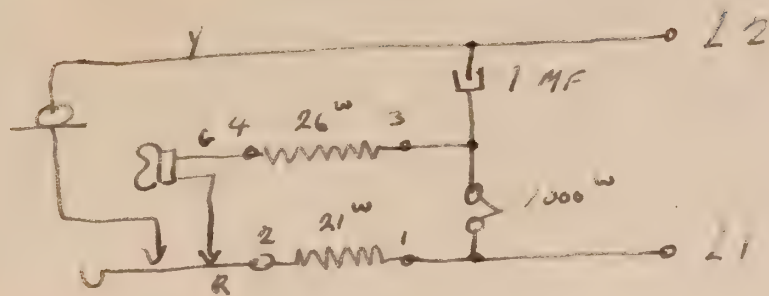 Y
L 2
1 MF
G 4 26ω 3
1000ω
2 21ω 1
L 1
R